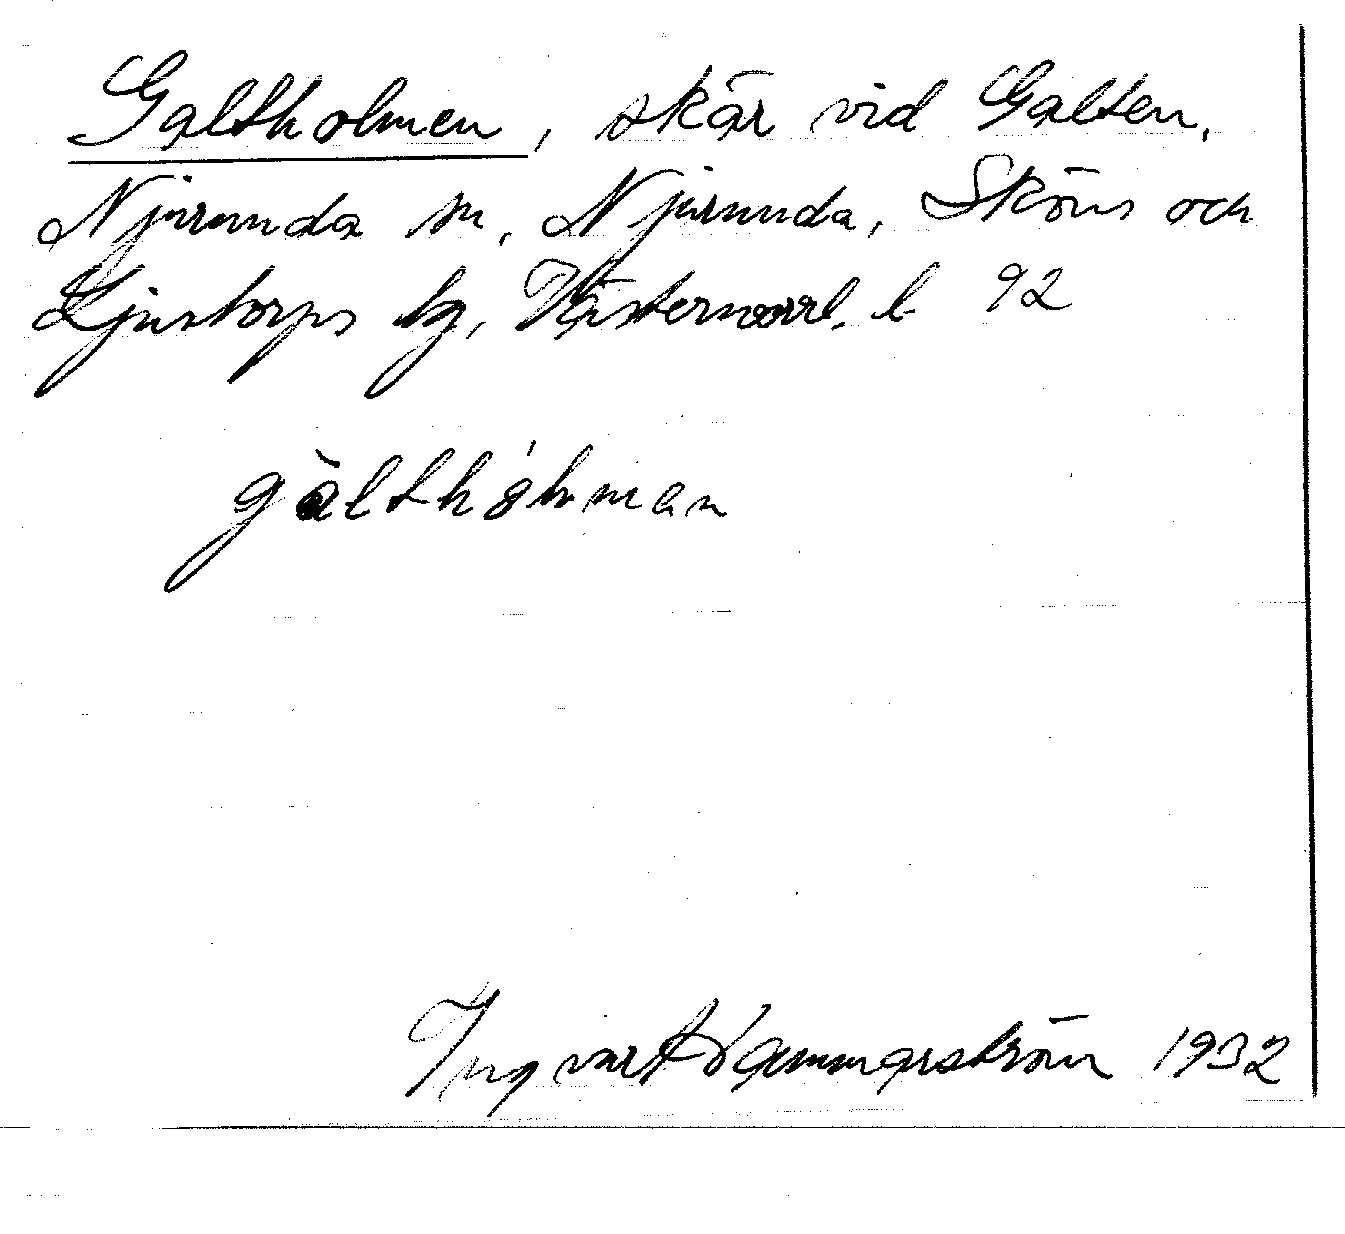 Galtholmen, skär vid Galten,
Njurunda sn, Njurunda, Sköns och
Ljustorps tg, Västernorrl. l. 92
gàlthólmən
Ingvar Hammarström 1932